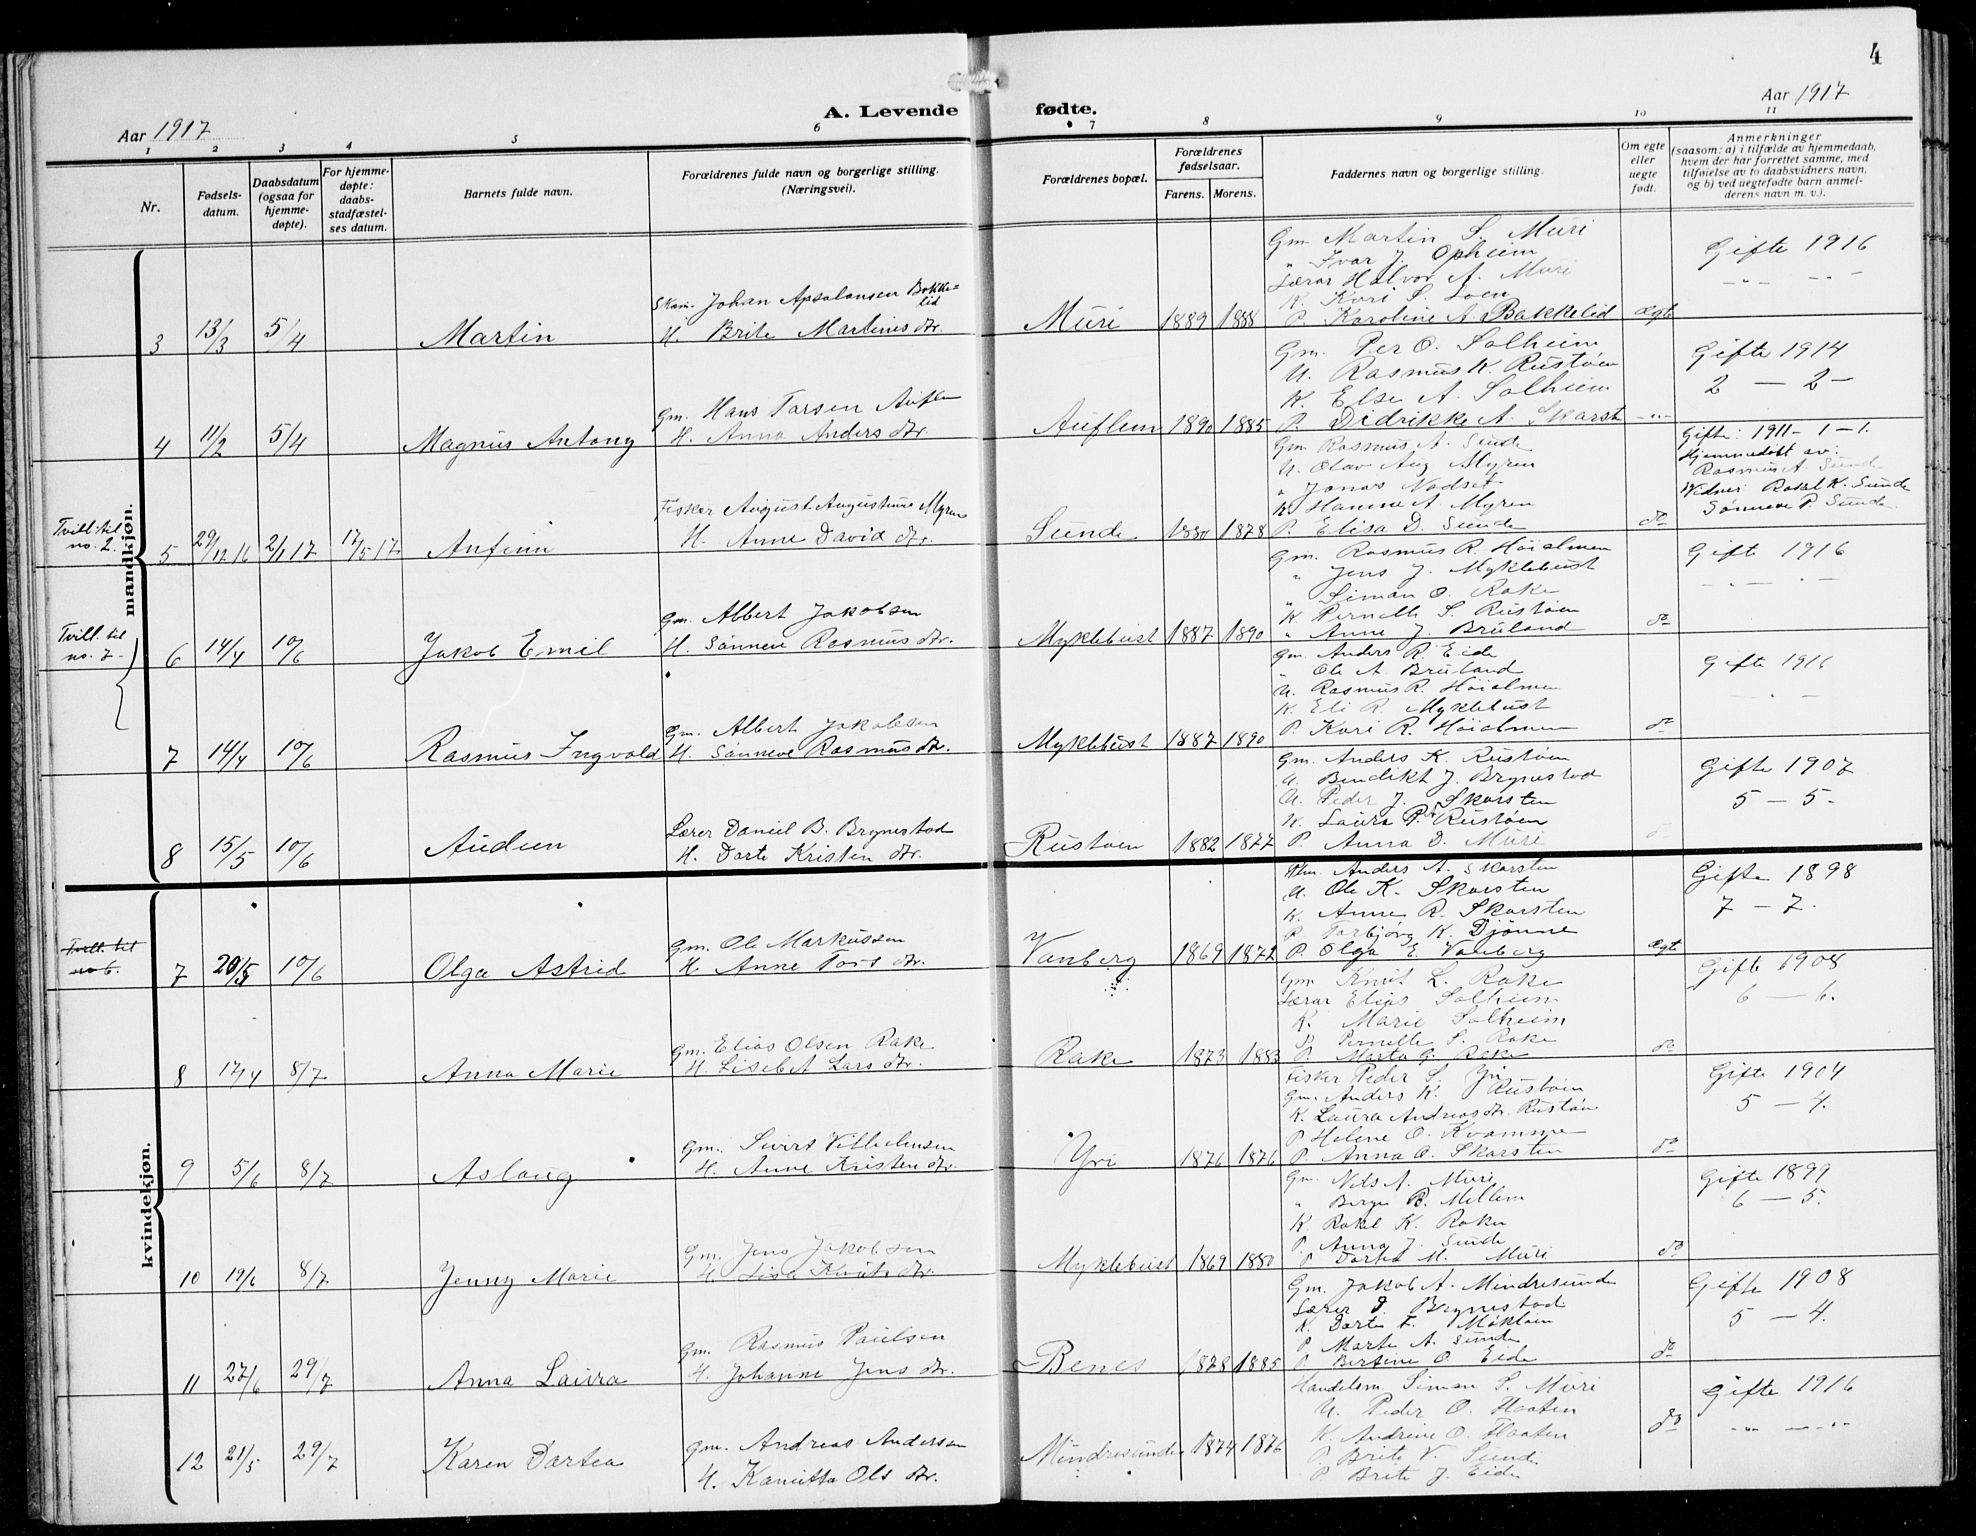 4
A. Levende fødte.
Aar 1917
Aar 1917
1 2 3 4 5 6 7 8 9 10 11
Nr.
Fødsels-
datum.
Daabsdatum
(ogsaa for
hjemme-
døpte).
For hjemme-
døpte:
daabs-
stadfæstel-
ses datum.
Barnets fulde navn.
Forældrenes fulde navn og borgerlige stilling.
(Næringsvei).
Forældrenes bopæl.
Forældrenes
fødselsaar.
Farens. Morens.
Faddernes navn og borgerlige stilling.
Om egte
eller
uegte
født.
Anmerkninger
(saasom: a) i tilfælde av hjemmedaab,
hvem der har forrettet samme, med
tilføielse av to daabsvidners navn,
og b) ved uegtefødte barn anmel-
derens navn m. v.).
mandkjøn.
3 13/3 5/4 Martin
Johan Apsalonsen Bakke-
lid
H. Brite Martines dtr.
Muri 1889 1888
Gm. Martin S. Muri
" Ivar J. Opheim
Lærar Halvor A. Muri
K. Kari S. Loen
P. Karoline A. Bakkelid
ægte
Gifte 1916
4 11/2 5/4 Magnus Antony
Gm. Hans Tarsen Auflem
H. Anna Anders dtr.
Auflem 1890 1885
Gm. Per O. Solheim
U. Rasmus K. Rustøen
K. Else A. Solheim
P. Didrikke A. Skarst
-"-
Gifte 1914
2 — 2 —
Tvill. til
no. 2.
5 29/12 16 2/1 17 17/5 17 Anfinn
Fisker August Augustinus Myren
H. Anne David dtr.
Sunde 1880 1878
Gm. Rasmus A. Sunde
U. Olav Aug Myren
" Jonas Nodset
K. Hanna A. Myren
P. Elisa D. Sunde
do
Gifte: 1911 - 1 - 1.
Hjemmedøbt av:
Rasmus A. Sunde
Vidner: Rakel K. Sunde
Sønneve P. Sunde
Tvill. til
no. 7.
6 14/4 10/6 Jakob Emil
Gm. Albert Jakobsen
H. Sønneve Rasmus dtr.
Myklebust 1887 1890
Gm. Rasmus R. Høialmen
" Jens J. Myklebust
" Simon O. Rake
K. Pernelle S. Rustøen
" Anne J. Bruland
do
Gifte 1916
7 14/4 10/6 Rasmus Ingvald
Gm. Albert Jakobsen
H. Sønneve Rasmus dtr.
Myklebust 1887 1890
Gm. Anders R. Eide
" Ole A. Bruland
U. Rasmus R. Høialmen
K. Eli R. Myklebust
P. Kari R. Høialmen
do
Gifte 1916
8 15/5 10/6 Audun
Lærer Daniel B. Brynestad
H. Dorte Kristen dtr.
Rustøen 1882 1877
Gm. Anders K. Rustøen
U. Bendikt J. Brynestad
U. Peder J. Skarsten
K. Laura P. Rustøen
P. Anna D. Muri
Gifte 1907
5 — 5.
kvindekjøn.
Tvill. til
no 6.
7 20/5 10/6 Olga Astrid
Gm. Ole Markussen
H. Anne Tors dtr.
Vanberg 1869 1872
Anders A. Skarsten
U. Ole K. Skarsten
K. Anne R. Skarsten
P. Torbjørg K. Djønne
P. Olga E. Vanberg
ægte
Gifte 1898
7 — 7.
8 17/4 8/7 Anna Marie
Gm. Elias Olsen Rake
H. Lisebet Lars dtr.
Rake 1873 1883
Gm. Knut L. Rake
Lærar Elias Solheim
K. Marie Solheim
P. Pernille S. Rake
P. Marta G. Rake
do
Gifte 1908
6 — 6.
9 5/6 8/7 Aslaug
Gm. Sivert Vilhelmsen
H. Anne Kristen dtr.
Yri 1876 1876
Fisker Peder S. Yri
Gm. Anders K. Rustøen
K. Laura Andreas dtr. Rustøen
P. Helene O. Kvamme
P. Anna O. Skarsten
do
Gifte 1904
5 — 4.
10 19/6 8/7 Jenny Marie
Gm. Jens Jakobsen
H. Lisa Knuts dtr.
Myklebust 1869 1880
Gm. Nils A. Muri
" Berge R. Mellem
K. Rakel K. Rake
P. Anna J. Sunde
P. Dortea M. Muri
do
Gifte 1899
6 — 5.
11 27/6 29/7 Anna Laura
Gm. Rasmus Paulsen
H. Johanne Jens dtr.
Benes 1878 1885
Gm. Jakob A. Mindresunde
Lærer D. Brynestad
K. Dorte F.
P. Marte A. Sunde
P. Bertine O. Eide
do
Gifte 1908
5 — 4.
12 21/5 29/7 Karen Dortea
Gm. Andreas Andersen
H. Kamitta Ols dtr.
Mindresunde 1874 1876
Handelsm. Simon S. Muri
U. Peder O. Flaaten
K. Andrine O. Flaaten
P. Brite V. Sunde
P. Brite J. Eide
do
Gifte 1916